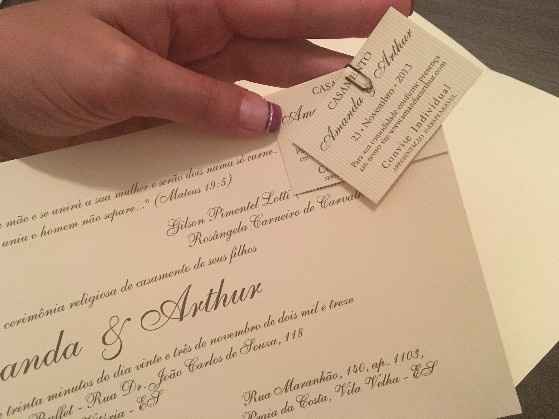 mãe e se unirá a sua mulher e serão dois numa só carne.
uniu o homem não separe..." (Mateus 19:5)
Gilson Pimentel Lotti
Rosângela Carneiro de Carvalh
cerimônia religiosa de casamento de seus filhos
anda & Arthur
trinta minutos do dia vinte e três de novembro de dois mil e treze
Buffet - Rua Dr. João Carlos de Souza, 118
Vitória - ES
Rua Maranhão, 140, ap. 1103,
Praia da Costa, Vila Velha - ES
CASA
Am
CASAMENTO
Amanda & Arthur
23 • Novembro • 2013
Convite Individual